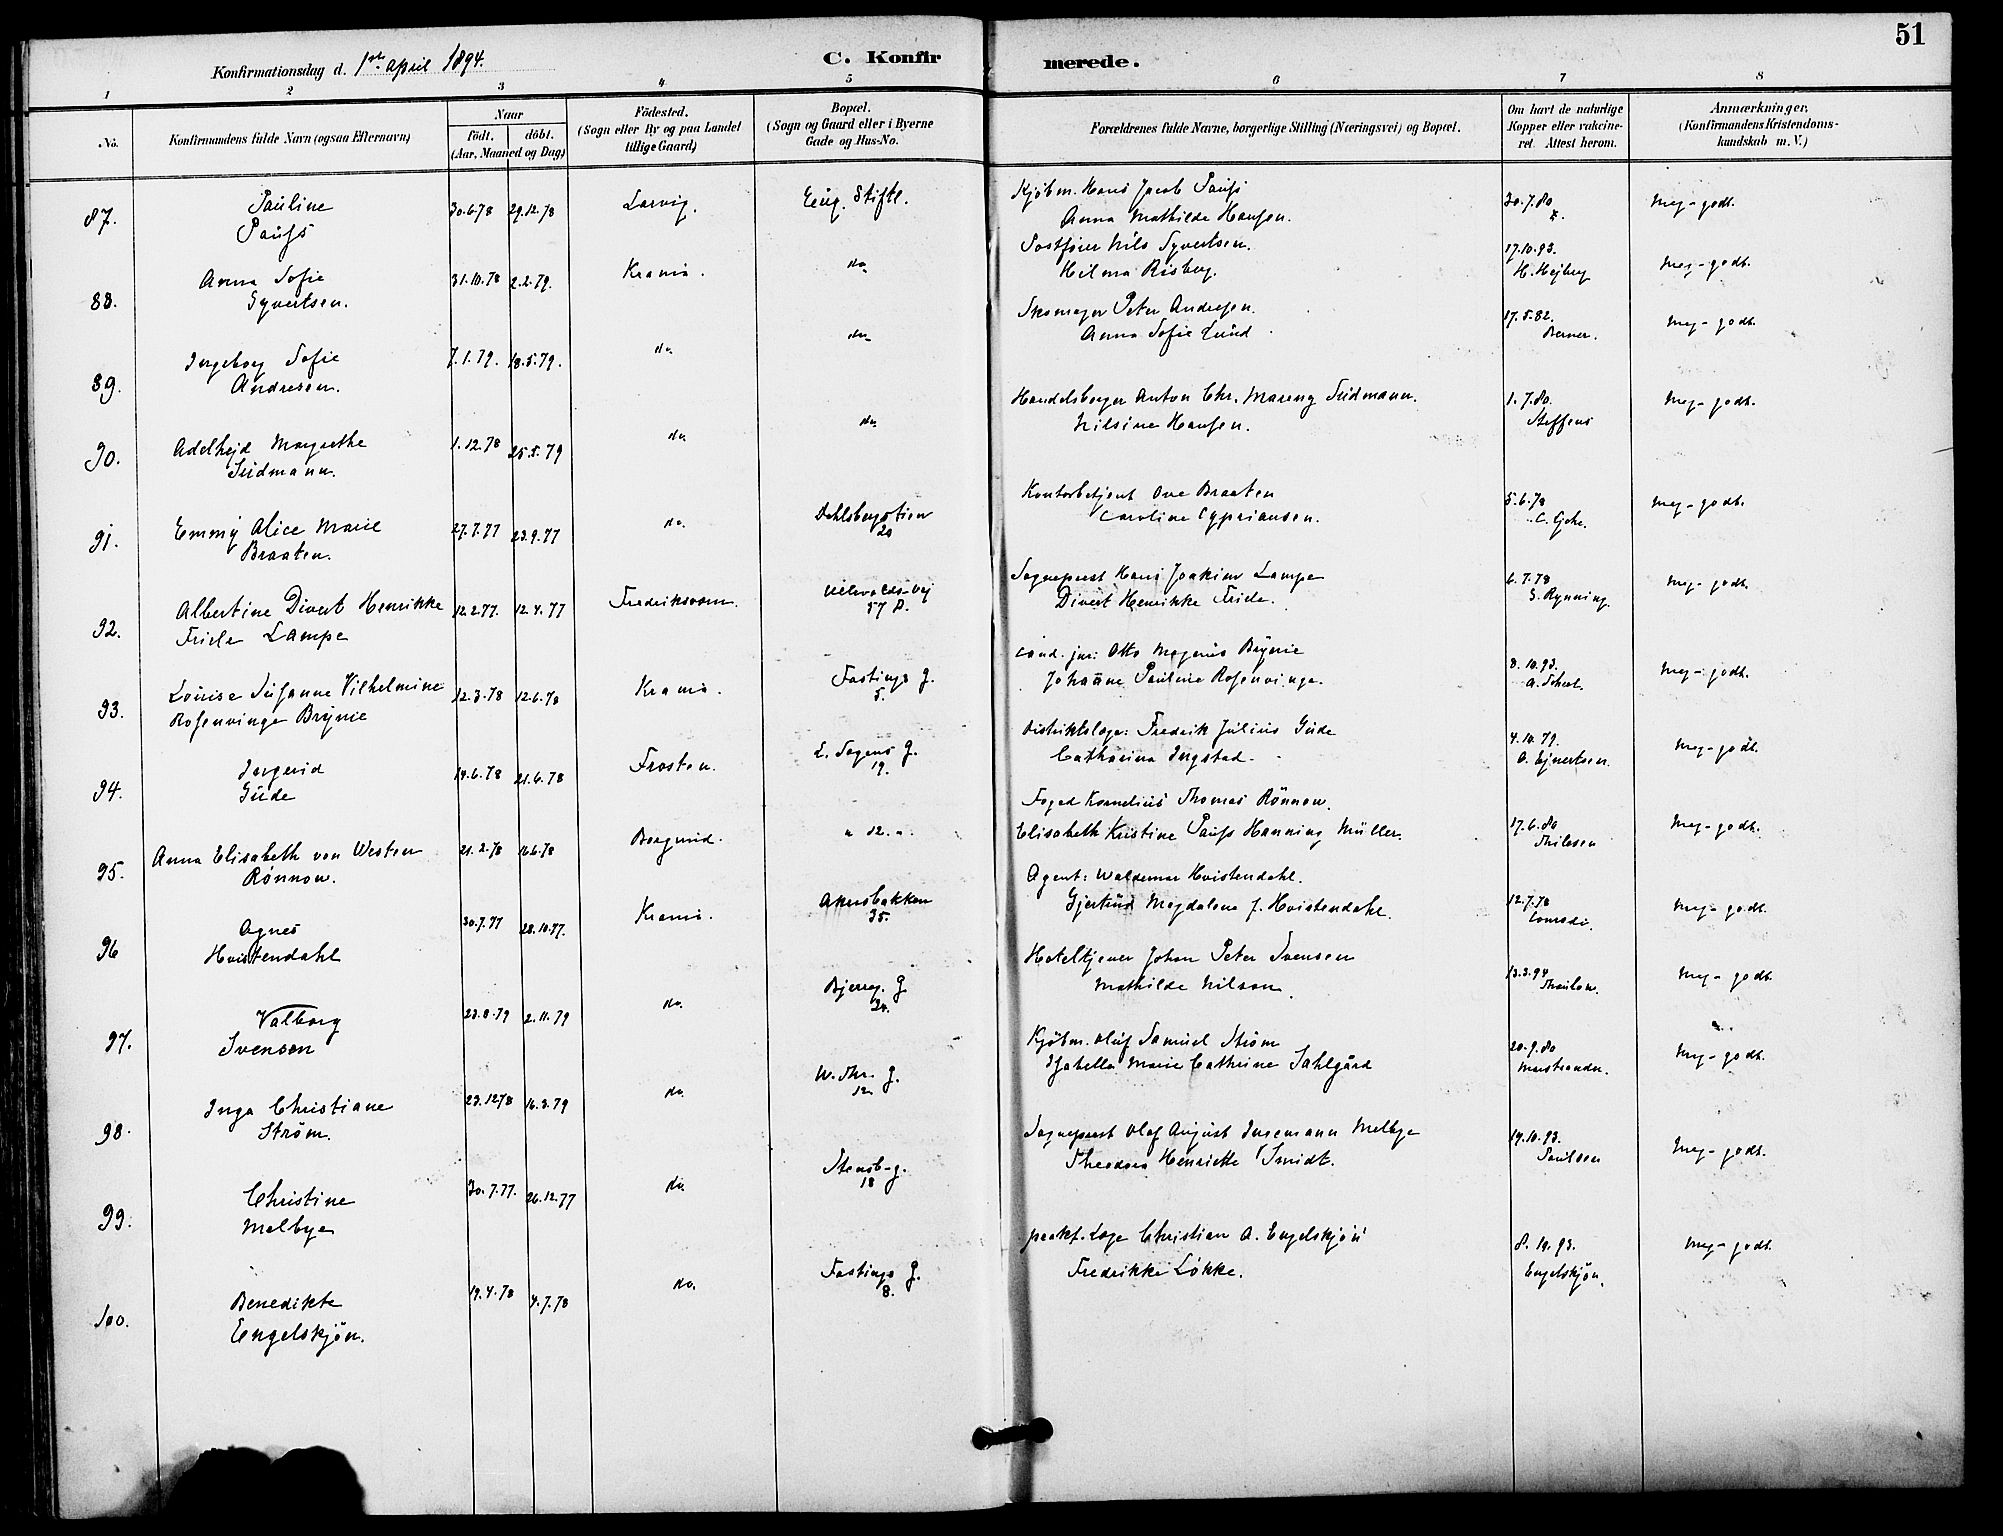 51
Konfirmationsdag d. 1ste april 1894.
C. Konfirmerede.
1 2 3 4 5 6 7 8
No. Konfirmandens fulde Navn (ogsaa Efternavn) Naar födt. döbt. (Aar, Maaned og Dag) Födested. (Sogn eller By og paa Landet tillige Gaard) Bopæl. (Sogn og Gaard eller i Byerne Gade og Hus-No. Forældrenes fulde Navne, borgerlige Stilling (Næringsvei) og Bopæl. Om havt de naturlige Kopper eller vakcineret. Attest herom. Anmærkninger. (Konfirmandens Kristendomskundskab m. V.)
87. Pauline Paufs 30.6.78 29.12.78 Larvig. Eug. Stiftl. Kjöbm. Hans Jacob Paufs 30.7.80 meg-godt.
Anna Mathilde Hansen.
88. Anna Sofie Syvertsen. 31.10.78 2.2.79. Krania. do Postfører Nils Syvertsen. 17.10.93. meg-godt.
Hilma Risberg. H. Hejberg
89. Ingeborg Sofie Andresen. 7.1.79. 18.5.79. do. do Skomager Peter Andresen. 17.5.82. meg-godt.
Anna Sofie Lund Berner.
90. Adelhejd Margrethe Südmann. 1.12.78 25.5.79 do do Handelsborger Anton Chr. Mareng Südmann. 1.7.80. meg-godt.
Nilsine Hansen. Steffens
91. Emmy Alice Marie Braaten. 27.7.77 23.9.77 do. Dahlsbergstien 20 Kontorbetjent Ove Braaten 5.6.78 meg-godt.
Caroline Cypriansen.
92. Albertine Divert Henrikke Friele Lampe 12.2.77. 12.4.77 Fredriksværn. Ullevoldsvej 57 Sogneprest Hans Joakim Lampe 6.7.78 meg-godt.
Divert Henrikke Friele. S. Rynning.
93. Louise Susanne Vilhelmine Rosenvinge Brynie 12.3.78 12.6.78 Krania. Fastings g. 5. Cand. jur: Otto Magnus Brynie 8.10.93. meg-godt.
Johanne Pauline Rosenvinge. A. Scheel.
94. Ingerid Gude 14.6.78 21.6.78 Frosten. L. Sagens g. 19. Distriktslæge: Fredrik Julius Gude 4.10.79. meg-godt.
Catharina Ingstad. O. Ejnertsen.
95. Anna Elisabeth von Westen Rönnow. 21.2.78 16.6.78 Borgund. " 12. " Foged Kornelius Thomas Rönnow. 17.6.80 meg-godt.
Elisabeth Kristine Paufs Hanning Müller. Thilesen
96 Agnes Hvistendahl 30.7.77 28.10.77. Krania. Akersbakken 35. Agent: Waldemar Hvistendahl. 12.7.78 meg-godt.
Gjertrud Magdalene J. Hvistendahl. Conradi.
97. Valborg Svenson 23.8.79 2.11.79 do. Bjerreg. g 24. Hotelkjener Johan Peter Svensen 13.3.94 meg-godt.
Mathilde Nilson. Thaulow.
98. Inga Christiane Ström. 23.12.78 16.3.79 do. W. Thr. g. 12 Kjöbm. Oluf Samuel Ström 20.9.80 meg-godt.
Isabella Marie Cathrine Sahlgård Marstrander.
99. Christine Melbye 30.7.77. 26.12.77 do. Stensb-g. 18 Sogneprest Olaf August Ingemann Melbye 19.10.93. meg-godt.
Theodora Henriette Smidt. Paulsen
100. Benedikte Engelskjön. 19.4.78 4.7.78 do. Fastings g. 8. prakt. Læge Christian A. Engelskjön 8.10.93. meg-godt.
Fredrikke Lökke. Engelskjön.